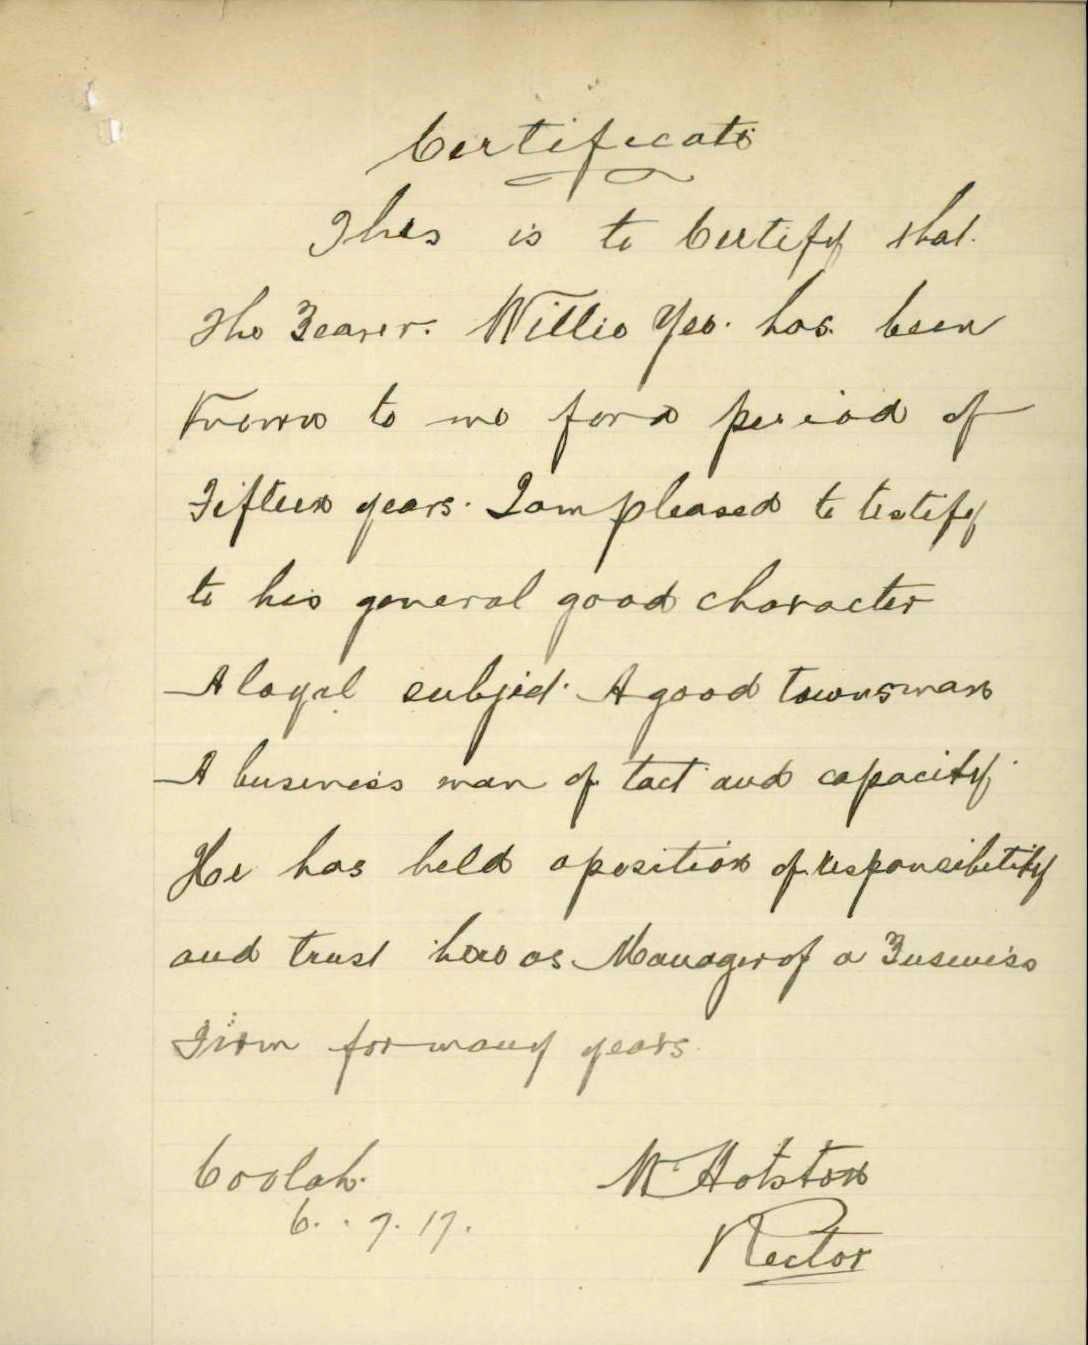 Certificate
This is to Certify that.
The Bearer. Willie Yee. has been
Known to me for a period of
Fifteen years. I am pleased to testify
to his general good character
A loyal subject. A good townsman
A business man of tact and capacity.
He has held a position of responsibility
and trust here as Manager of a Business
Firm for many years
Coolah.
6. . 7. 17.
W Hotston
Rector